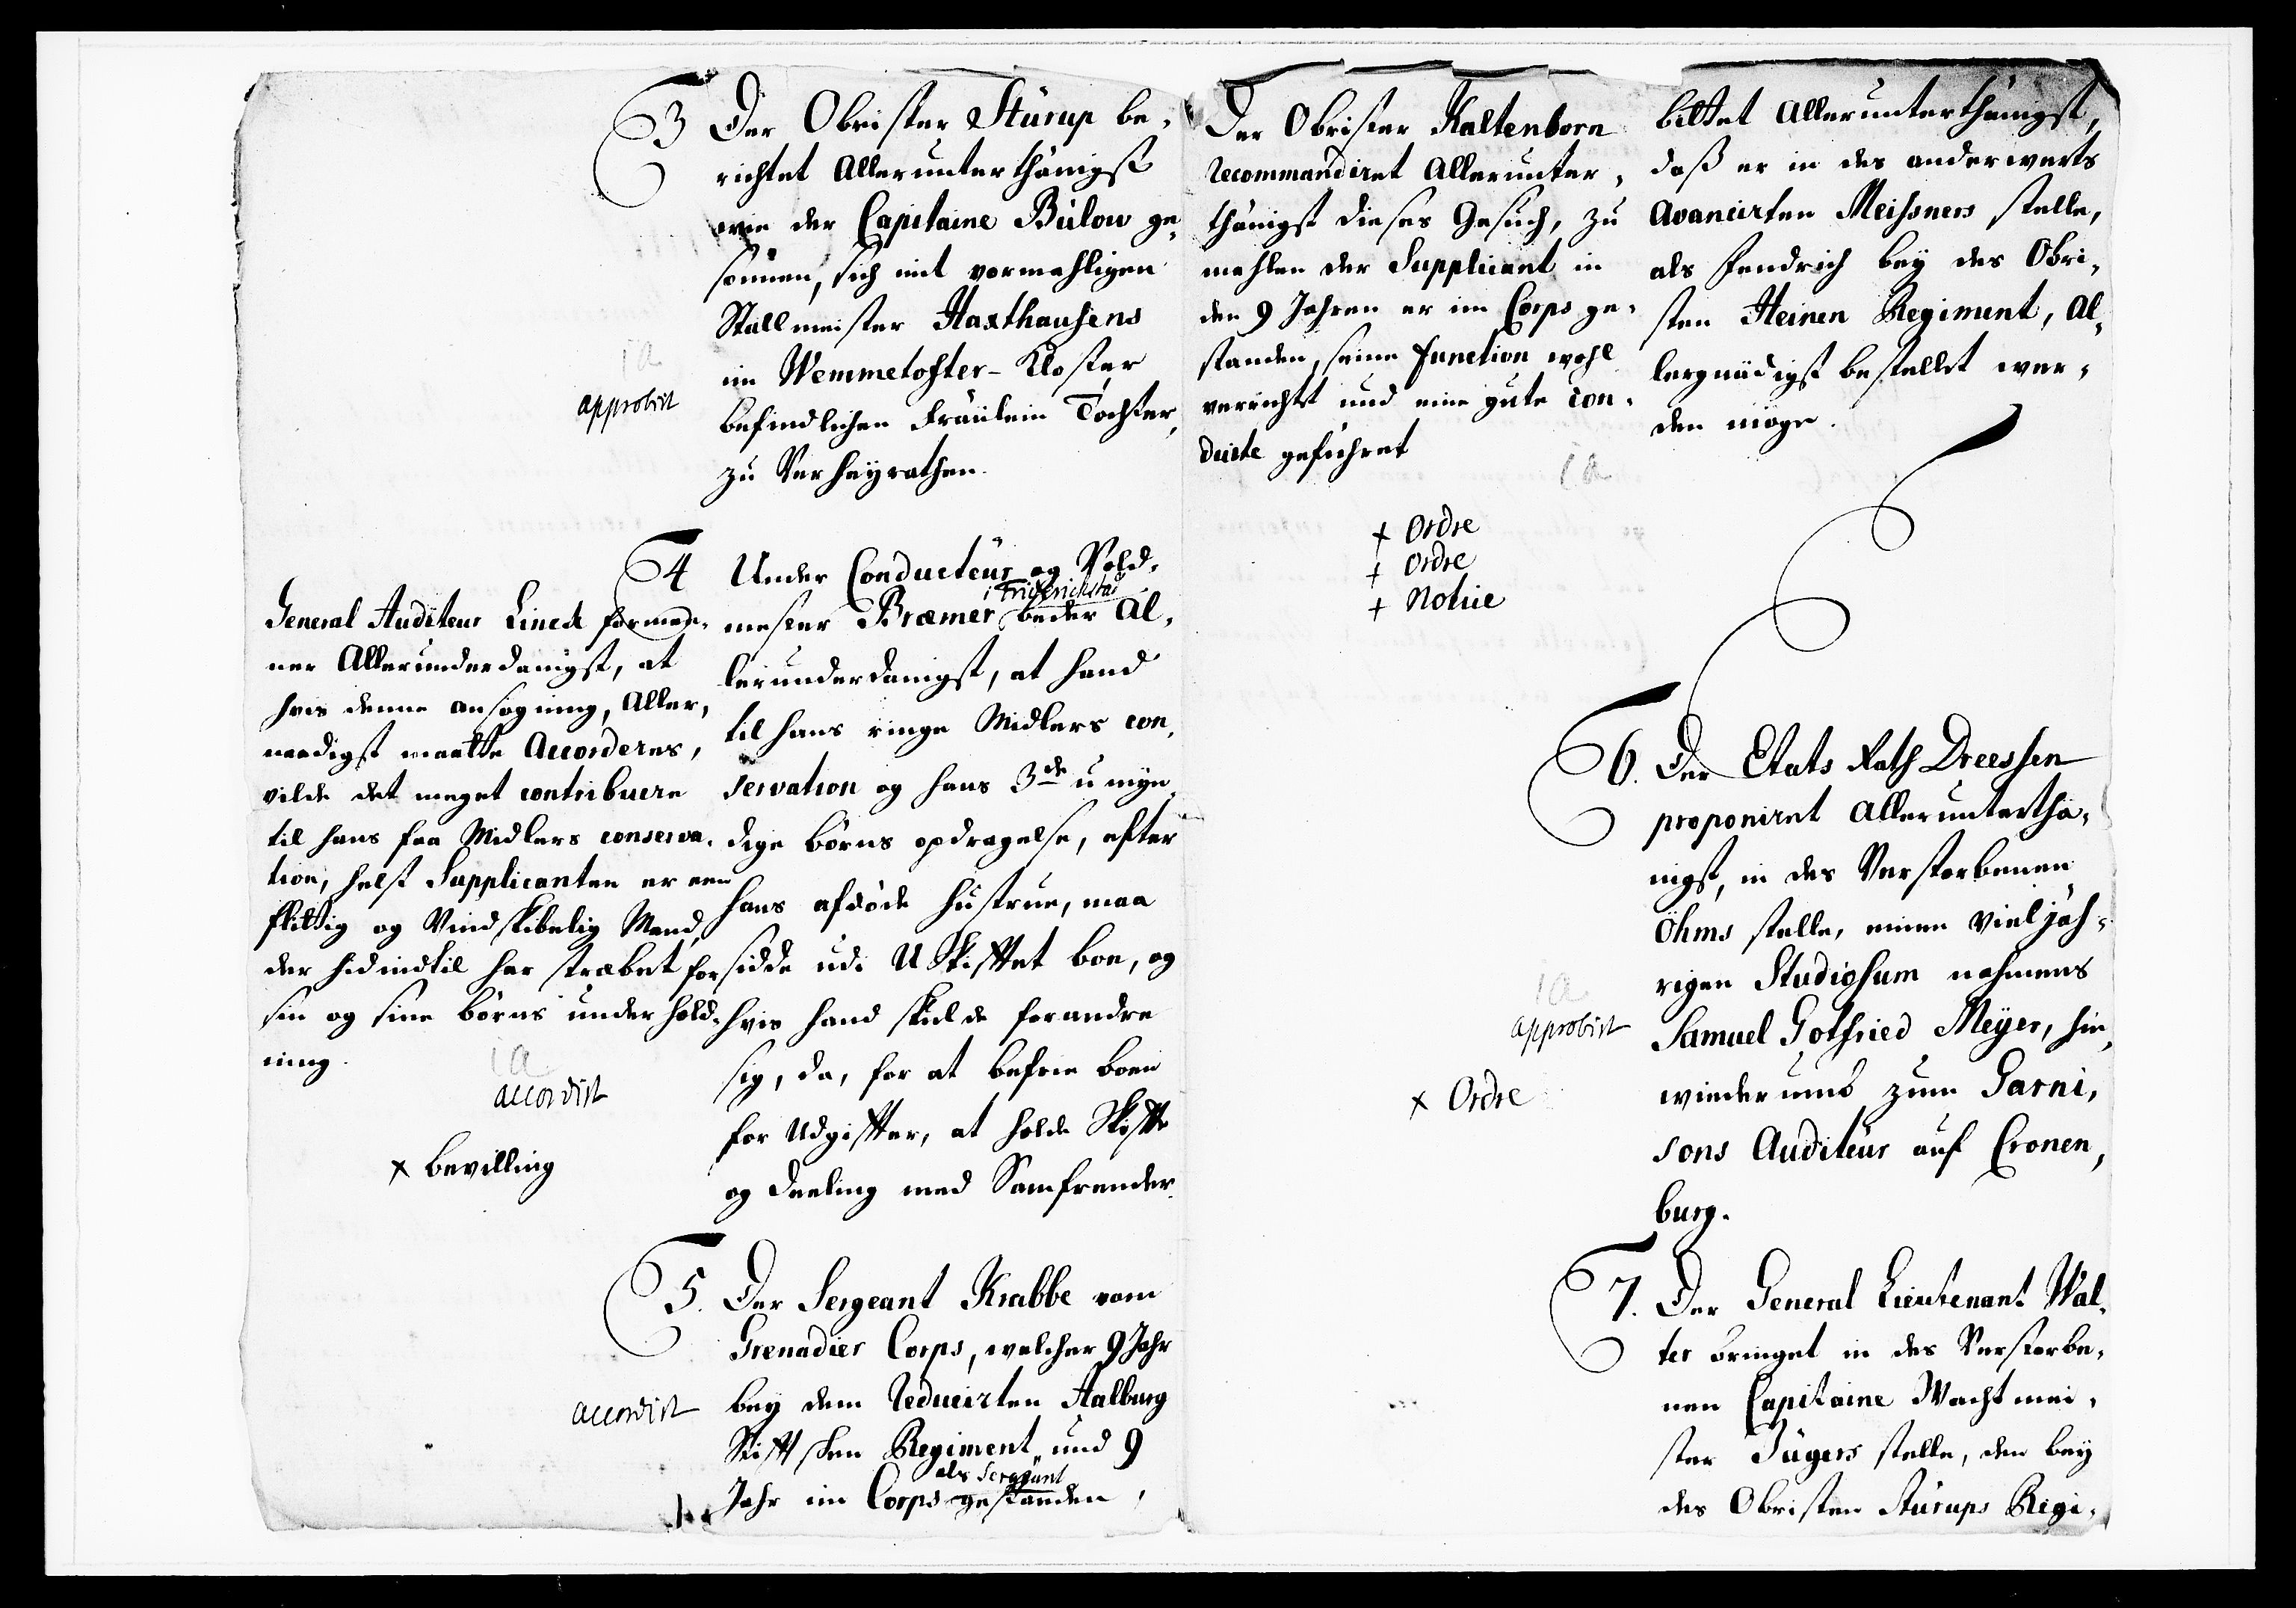 3 Der Obrister Stürup be-
richtet Allerunterthänigst
wie der Capitaine Bülow ge-
sonnen, sich mit vormahligen
Stallmeister Haxthausens
im Wemmetofter-Kloster
befindlichen Fräülein Tochter,
zu Verheyrathen.
ia
approbirt
4 Under Conducteur og Vold-
mester Bræmer i Friderichstad beder Al-
lerunderdanigst, at hand
til hans ringe Midlers con-
servation og hans 3de umyn-
dige børns opdragelse, efter
hans afdøde hustrue, maa
sidde udi USkifftet boe, og
hvis hand skulde forandre
sig, da, for at befrie boen
for Udgiffter, at holde Skiffte
og deeling med Samfrender.
General Auditeur Linck formee-
ner Allerunderdanigst, at
hvis denne ansøgning, Aller-
naadigst maatte Accorderes,
vilde det meget contribuere
til hans faa Midlers conserva-
tion, helst Supplicanten er een
flittig og Vindskibelig Mand,
der hidindtil har stræbet for
sin og sine børns underhold-
ning.
ia
accordirt
x bevilling
5. Der Sergeant Krabbe vom
Grenadier Corps, welcher 9 Jahr
bey dem reducirten Aalburg
Stifftschen Regiment und 9
Jahr im Corps als Sergeant gestanden,
accordirt
bittet Allerunterthänigst,
daß er in des anderwerts
Avancirten Meissners stelle,
als Fendrich bey des Obri-
sten Heinen Regiment, Al-
lergnädigst bestellet wer-
den möge.
Der Obrister Kaltenborn
recommandiret Allerunter-
thänigst dieses Gesuch, zu
mahlen der Supplicant in
den 9 Jahren er im Corps ge-
standen, seine Function wohl
verrichtet und eine gute con-
duite geführet
ia
+ Ordre
+ Ordre
+ Notice
6. Der Etats Rath Dreessen
proponiret Alleruntertha-
nigst, in des Verstorbenen
Öhms stelle, einen Vieljäh-
rigen Studiosum nahmens
Samuel Gotfried Meyer, hin-
wiederumb zum Garni-
sons Auditeur auf Cronen-
burg.
ia
approbirt
x Ordre
7. Der General Lieutenant Wal-
ter bringet in des Verstorbe-
nen Capitaine Wachtmei-
ster Jügers stelle, den bey
des Obristen Stürups Regi-